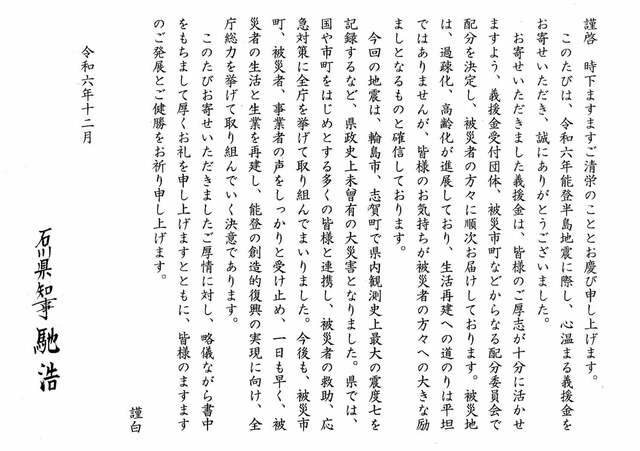 謹啓　時下ますますご清栄のこととお慶び申し上げます。
　このたびは、令和六年能登半島地震に際し、心温まる義援金を
お寄せいただき、誠にありがとうございました。
　お寄せいただきました義援金は、皆様のご厚志が十分に活かせ
ますよう、義援金受付団体、被災市町などからなる配分委員会で
配分を決定し、被災者の方々に順次お届けしております。被災地
は、過疎化、高齢化が進展しており、生活再建への道のりは平坦
ではありませんが、皆様のお気持ちが被災者の方々への大きな励
ましとなるものと確信しております。
　今回の地震は、輪島市、志賀町で県内観測史上最大の震度七を
記録するなど、県政史上未曾有の大災害となりました。県では、
国や市町をはじめとする多くの皆様と連携し、被災者の救助、応
急対策に全庁を挙げて取り組んでまいりました。今後も、被災市
町、被災者、事業者の声をしっかりと受け止め、一日も早く、被
災者の生活と生業を再建し、能登の創造的復興の実現に向け、全
庁総力を挙げて取り組んでいく決意であります。
　このたびお寄せいただきましたご厚情に対し、略儀ながら書中
をもちまして厚くお礼を申し上げますとともに、皆様のますます
のご発展とご健勝をお祈り申し上げます。
謹白
令和六年十二月
石川県知事 馳浩